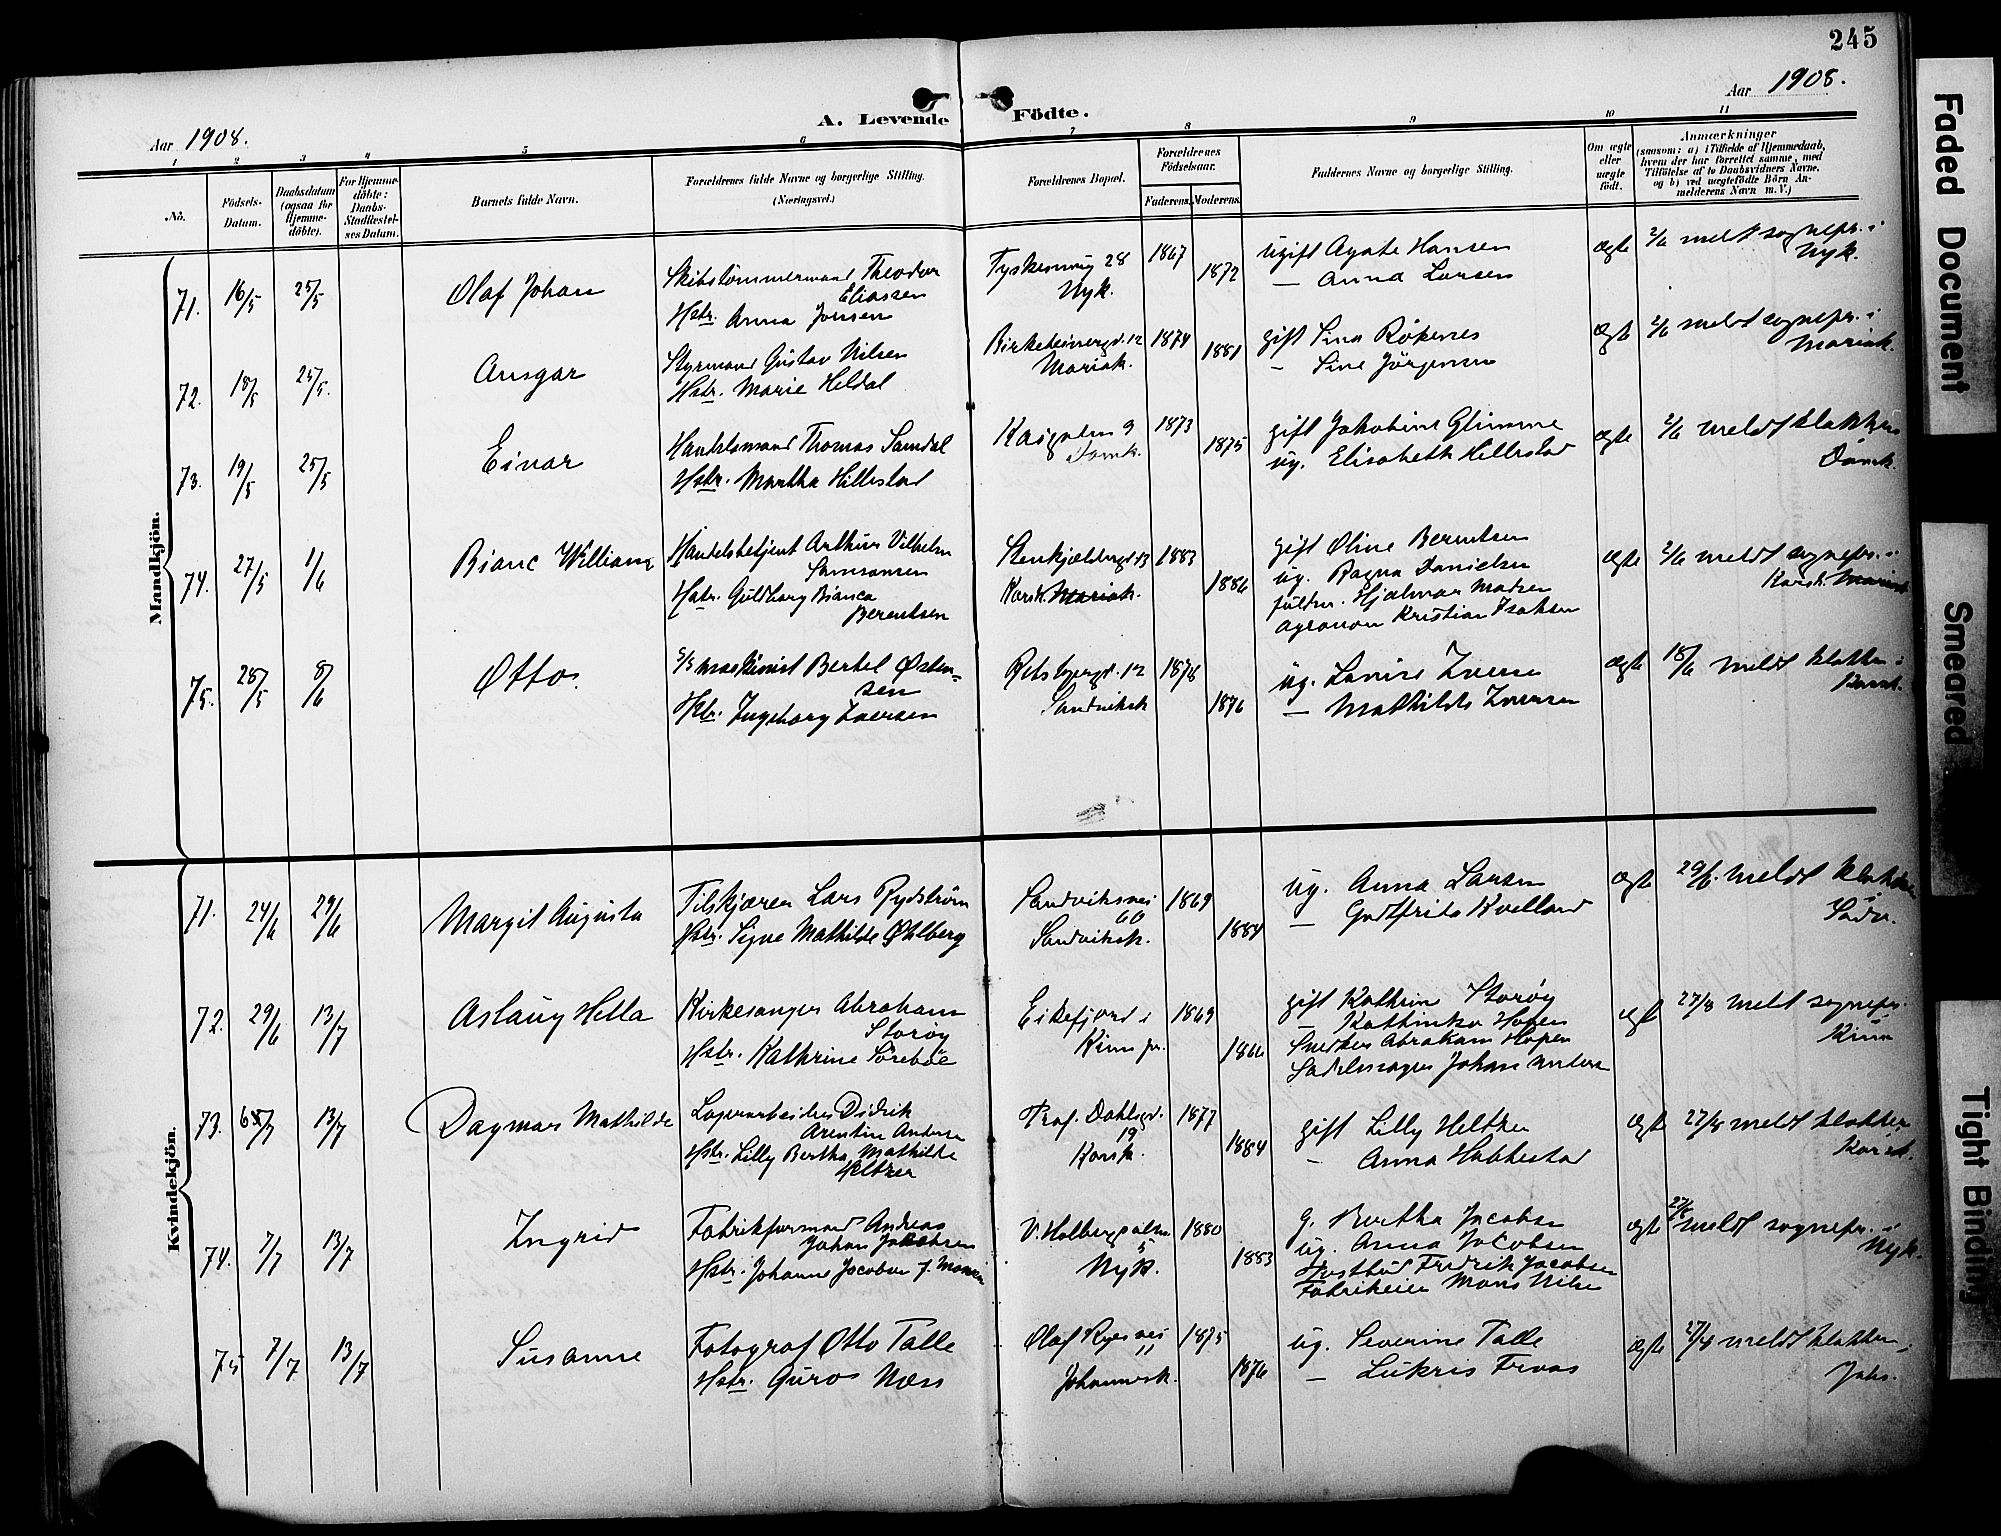 245
Aar 1908.
Aar 1908.
A. Levende Födte.
1 2 3 4 5 6 7 8 9 10 11
No.
Födsels-Datum.
Daabsdatum (ogsaa for Hjemme-döbte).
For Hjemme-döbte: Daabs-Stadfæstel-ses Datum.
Barnets fulde Navn.
Forældrenes fulde Navne og borgerlige Stilling. (Næringsvei.)
Forældrenes Bopæl.
Forældrenes Födselsaar.
Faderens. Moderens.
Faddernes Navne og borgerlige Stilling.
Om ægte eller uægte födt.
Anmærkninger
(saasom: a) i Tilfælde af Hjemmedaab, hvem der har forrettet samme, med Tilföielse af to Daabsvidners Navne, og b) ved uægtefödte Börn An-melderens Navn m. V.)
Mandkjön.
71. 16/5 25/5 Olaf Johan
Skibstømmermand Theodor
Eliassen
Hstr. Anna Jonsen
28
Nyk.
1867 1872
ugift Agate Hansen
— Anna Larsen
ægte
2/6 meldt sognepr. i
Nyk.
72. 18/5 25/5. Ansgar
Styrmand Gustav Nilsen
Hstr. Marie Heldal
Birkebeinergd. 12
Mariak.
1874 1881
gift Lina Röknes
— Line Jörgensen
ægte
2/6 meldt sognepr. i
Mariak.
73. 19/5 25/5 Einar
Handelsmand Thomas Samdal
Hstr. Martha Hillestad
9
Domk.
1873 1875
gift Jakobine Glimme
ug. Elisabeth Hillestad
ægte
2/6 meldt klokken
Domk.
74. 27/5 1/6 Bianc William
Handelsbetjent Arthur Vilhelm
Samsonsen
Hstr. Guldborg Bianca
Berentsen
13
Korsk. Mariak.
1883 1886
gift Oline Berentsen
ug. Ragna Danielsen
Hjalmar Madsen
Agronom Kristian Isaksen
ægte
2/6 meldt sognepr. i
Korsk. Mariak
75. 28/5 8/6 Otto.
S/S maskinist Bertel Østen-
sen
Hstr. Ingeborg Iversen
12
Sandviksk
1878 1876
ug. Lovise Iversen
— Mathilde Iversen
ægte
18/6 meldt klokker i
Korsk.
Kvindekjön.
71. 24/6 29/6 Margit Augusta
Tilskjærer Lars Rydström
Hstr. Signe Mathilde Øhlberg
Sandviksvei
60
Sandviksk.
1869 1884
ug. Anna Larsen
— Godtfrida Kvelland
ægt
29/6. meldt klokker
Sadv.
72. 29/6 13/7 Aslaug Hella
Kirkesanger Abraham
Storøy
Hstr. Kathrine Sörebøe
Eikefjord i
Kinn pr.
1869 1866
gift Kathrin Storøy
— Kathinka Hopen
Snedker Abraham Hopen
Sadelmager Johan
ægt
27/8 meldt sognepr.
Kinn
73. 6/7 13/7 Dagmar Mathilde
Lagerarbeider Didrik
Arentin Andersen
Hstr. Lilly Bertha Mathilde
Heltzer
Prof. Dahlsgd.
19
Korsk.
1877 1884
gift Lilly Heltzer
— Anna Habbestad
ægte
27/8 meldt klokker
Korsk.
74. 7/7 13/7 Ingrid
Fabrikformand Andreas
Johan Jakobsen
Hstr. Johanne Jacobsen f. Monsen
V. Holbergsalm.
5
Nyk.
1880 1883
g. Bertha Jacobsen
ug. Anna Jacobsen
Fredrik Jacobsen
Fabrikeier Mons Nilsen
ægte
27/8 meldt sognepr. i
Nyk.
75 7/7 13/7 Susanne
Fotograf Otto Talle
Hstr. Guro Næss
Olaf Ryesvei
11
Johannesk.
1875 1876
ug. Severine Talle
— Lukris
ægte
27/8 meldt klokker i
Johs.
Faded Document
Smeared
Tight Binding